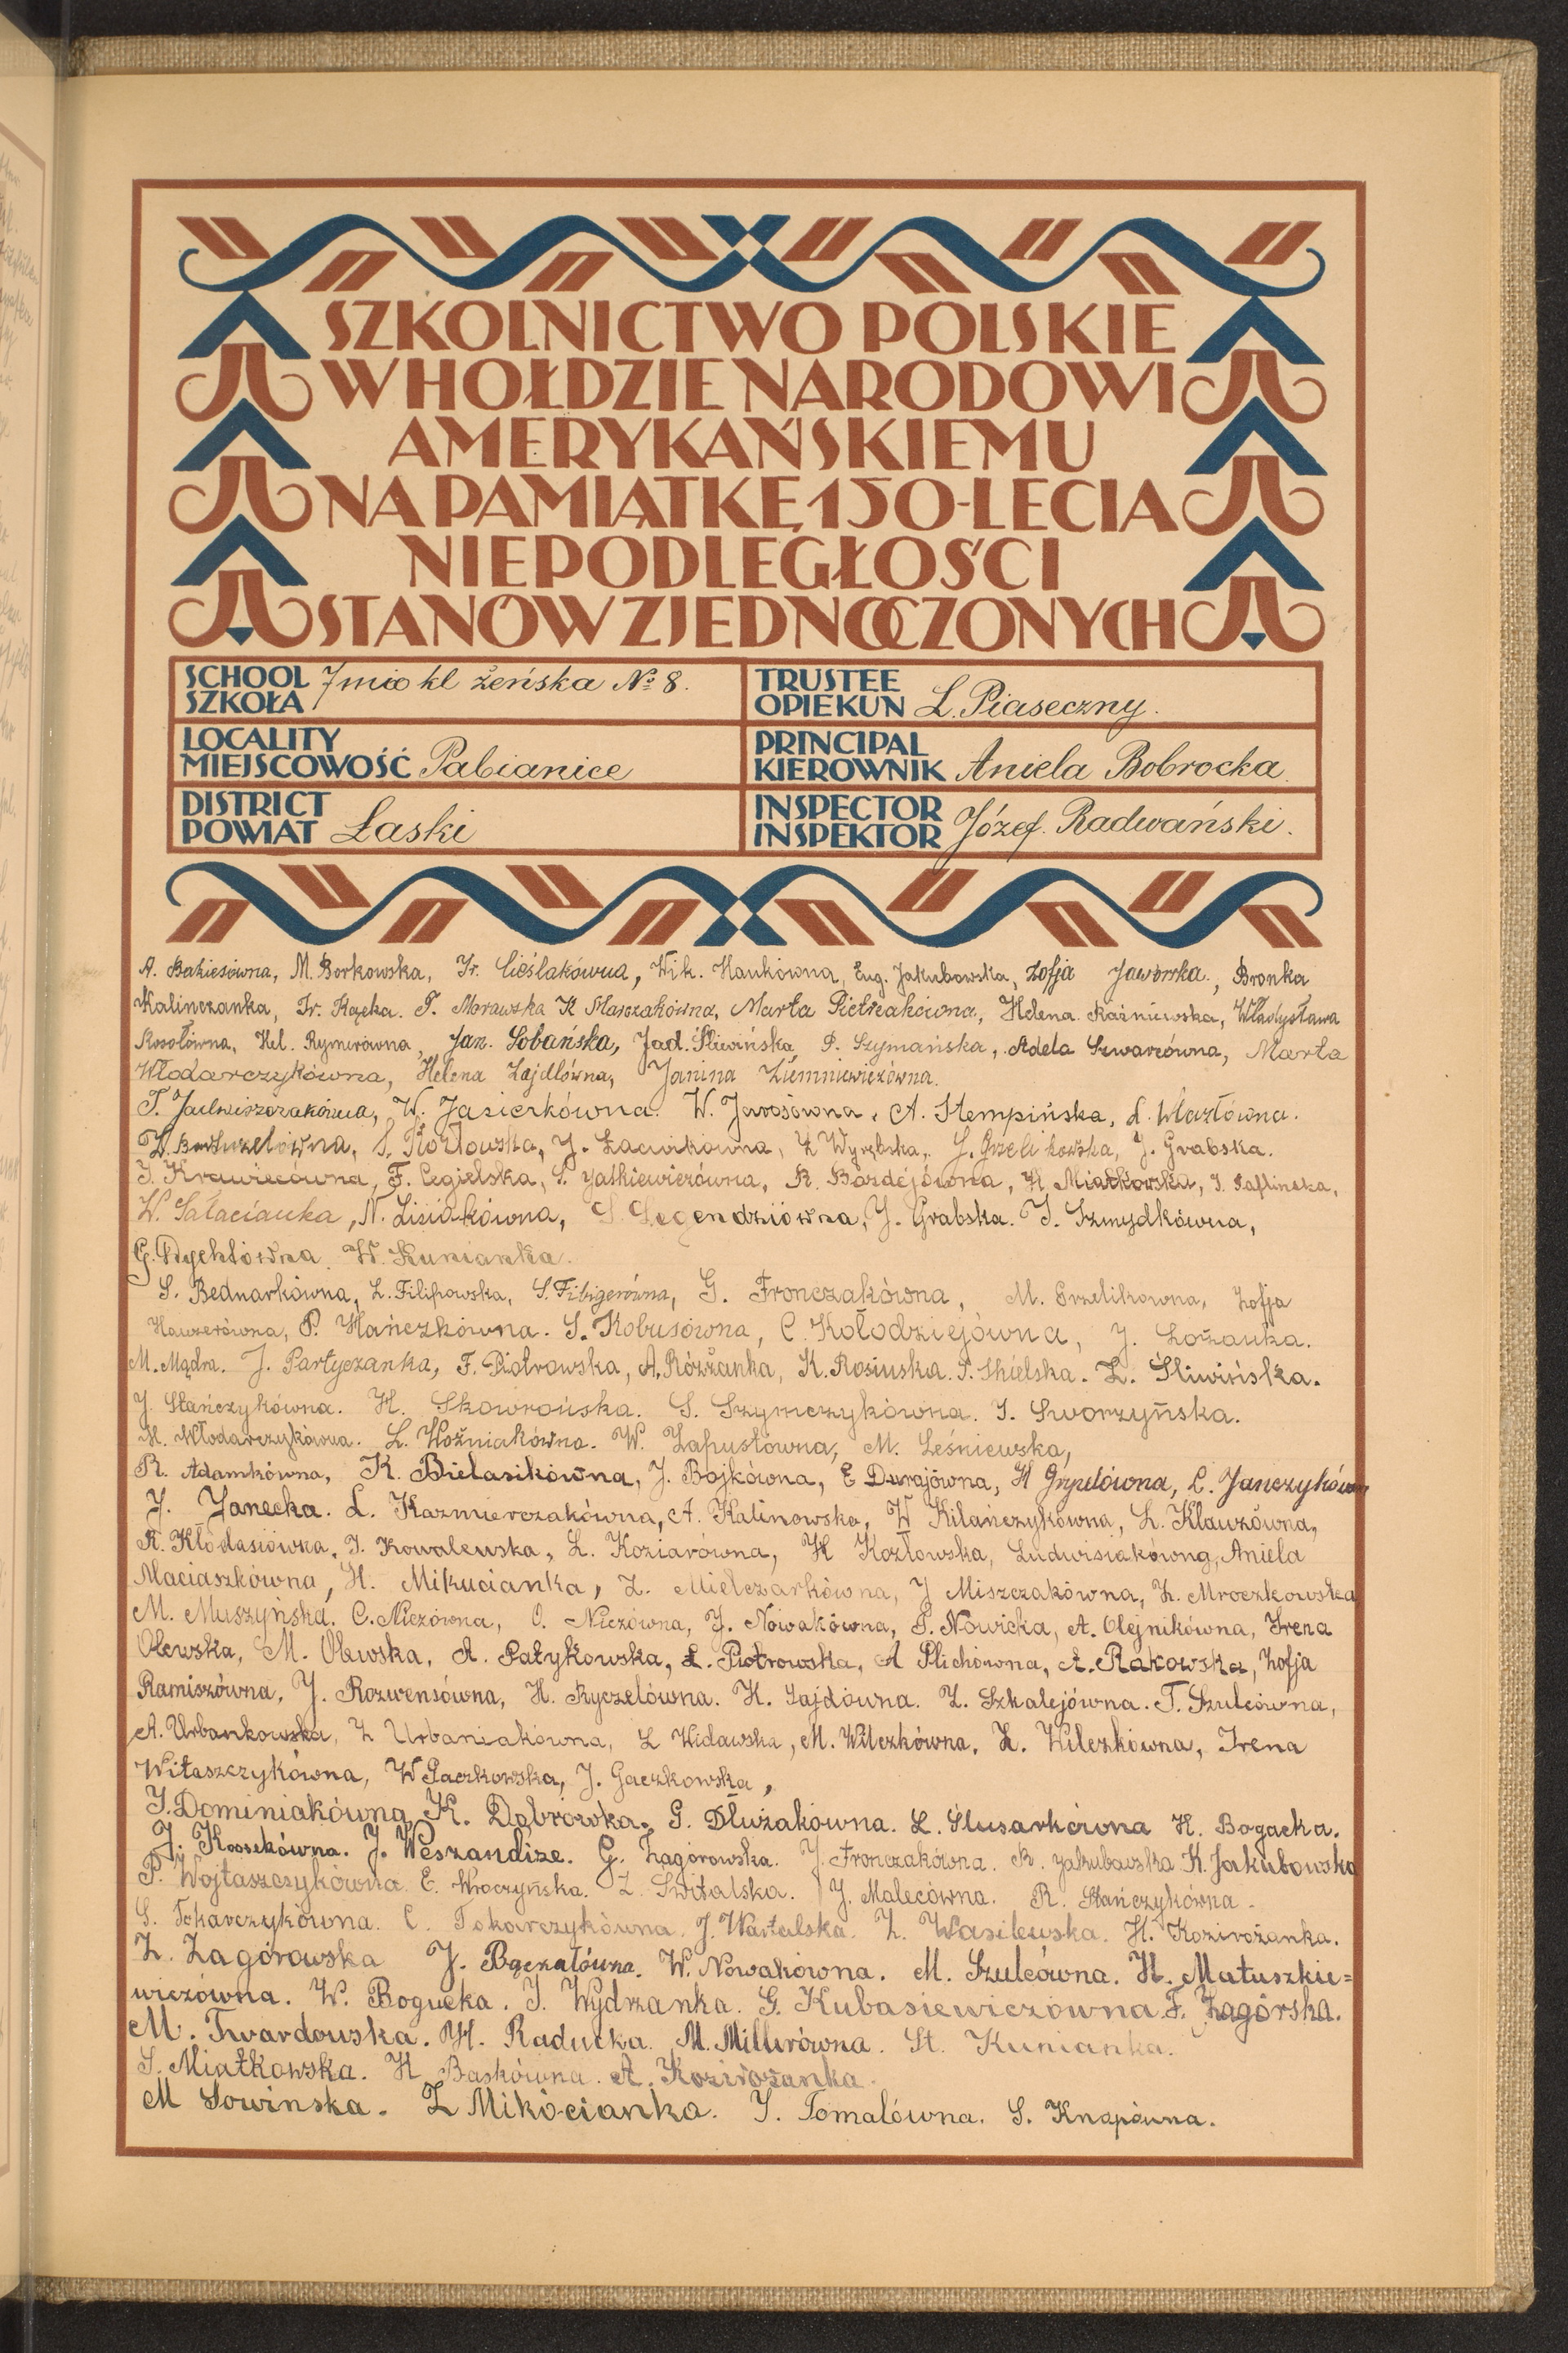 SZKOLNICTWO POLSKIE
W HOŁDZIE NARODOWI
AMERYKAŃSKIEMU
NA PAMIĄTKĘ 150-LECIA
NIEPODLEGŁOŚCI
STANÓW ZJEDNOCZONYCH
SCHOOL
SZKOŁA 7mio kl żeńska № 8.
TRUSTEE
OPIEKUN L. Piaseczny.
LOCALITY
MIEJSCOWOŚĆ Pabianice
PRINCIPAL
KIEROWNIK Aniela Bobrocka.
DISTRICT
POWIAT Łaski
INSPECTOR
INSPEKTOR Józef. Radwański.
A. M. Borkowska, Ir. Cieślakówna, Wik. Hankówna, Eug. Jakubowska, Zofja Jaworska., Bronka
Kalinczanka, Ir. T. Morawska K Marta Pietrzakówna, Helena Raźniewska, Władysława
Kosołówna, Hel. Rymerówna, Jan. Sobańska, Jad. Śliwińska, P. Szymańska, Adela Szwarcówna, Marta
Włodarczykówna, Helena Zajdlówna, Janina Ziemniewiczówna.
T. W. Jasierkówna. W. Jarosówna, A. Stempińska, L. Wlazłówna.
W. S. Kozłowska, J. Z Wyrębska, J. Grzelikowska, J. Grabska.
J. Krawiecówna, F. Cegielska, S. Jatkiewiczówna, R. Bozdejówna, H. Miatkowska, J. Taflinska,
W. Sałacianka, N. Lisiakówna, S. Legendziówna, J. Grabska. J. Szmydkówna,
G. Dychtówna. W. Kunianka.
S. Bednarkówna, L. Filipowska, S. Fibigerówna, G. Fronczakówna, M. Grzelikowna, Zofja
Hauzerówna, P. Hańczkówna. S. Kobusówna, C. Kołodziejówna, J. Łożanka.
M. Mądra. J. Partyczanka, F. Piotrowska, A. Różżanka, K. Rosinska. P. Skielska. Z. Śliwińska.
J. Stańczykówna. H. Skowrońska. S. Szymczykówna. J. Sworzyńska.
H. Włodarczykówna. L. Woźniakówna. W. Zapustówna, M. Leśniewska,
R. Adamkówna, K. Bielasikówna, J. Bojkówna, E Durajówna, H Grypelówna, L. Janczykówna
J. Janecka. L. Kazmierczakówna, A. Kalinowska, W Kilańczykówna, L. Klauzówna,
A. Kłodasiówna, J. Kowalewska, L. Koziarówna, H Kozłowska, Ludwisiakówna, Aniela
Maciaszkówna, H. Mikucianka, Z. Mielczarkówna, J Miszczakówna, Z. Mroczkowska
M. Muszyńska. C. Niezówna, O. Niezówna, J. Nowakówna, S. Nowicka, A. Olejnikówna, Irena
Olewska, M. Olewska, A. Patykowska, L. Piotrowska, A Plichówna, A. Rakowska, Zofja
Ramiszówna, J. Rozwensówna, H. Ryczelówna. H. Sajdówna. Z. Szkalejówna. T. Szulcówna,
A. Urbankowska, Z Urbaniakówna, Z Widawska, M. Wilczkówna, Z. Wilczkówna, Irena
Witaszczykówna, W Paczkowska, J. Gaczkowska,
J. Dominiakówna, K. Dobrowka, G. Dłużakówna. L. Ślusarkówna H. Bogacka.
J. Kossekówna. J. Weszandize. G. Zagórowska. J. Fronczakówna. R. Jakubowska K. Jakubowska
P. Wojtaszczykówna E. Wroczyńska. Z. Switalska. J. Malecówna. R. Stańczykówna.
S. Tokarczykówna. C. Tokarczykówna. J. Wartalska. Z. Wasilewska. H. Kozirożanka.
Z. Zagórowska J. Bączałówna. W. Nowakówna. M. Szulcówna. H. Matuszkie=
wiczówna. W. Bogucka. J. Wydrzanka. G. Kubasiewiczówna. F. Zagórska.
M. Twardowska. H. Raducka. M. Millerówna. St. Kunianka.
S. Miatkowska. H Baskówna. A. Kozirożanka.
M Sowinska. Z Mikócianka. J. Tomalówna. S. Knapówna.